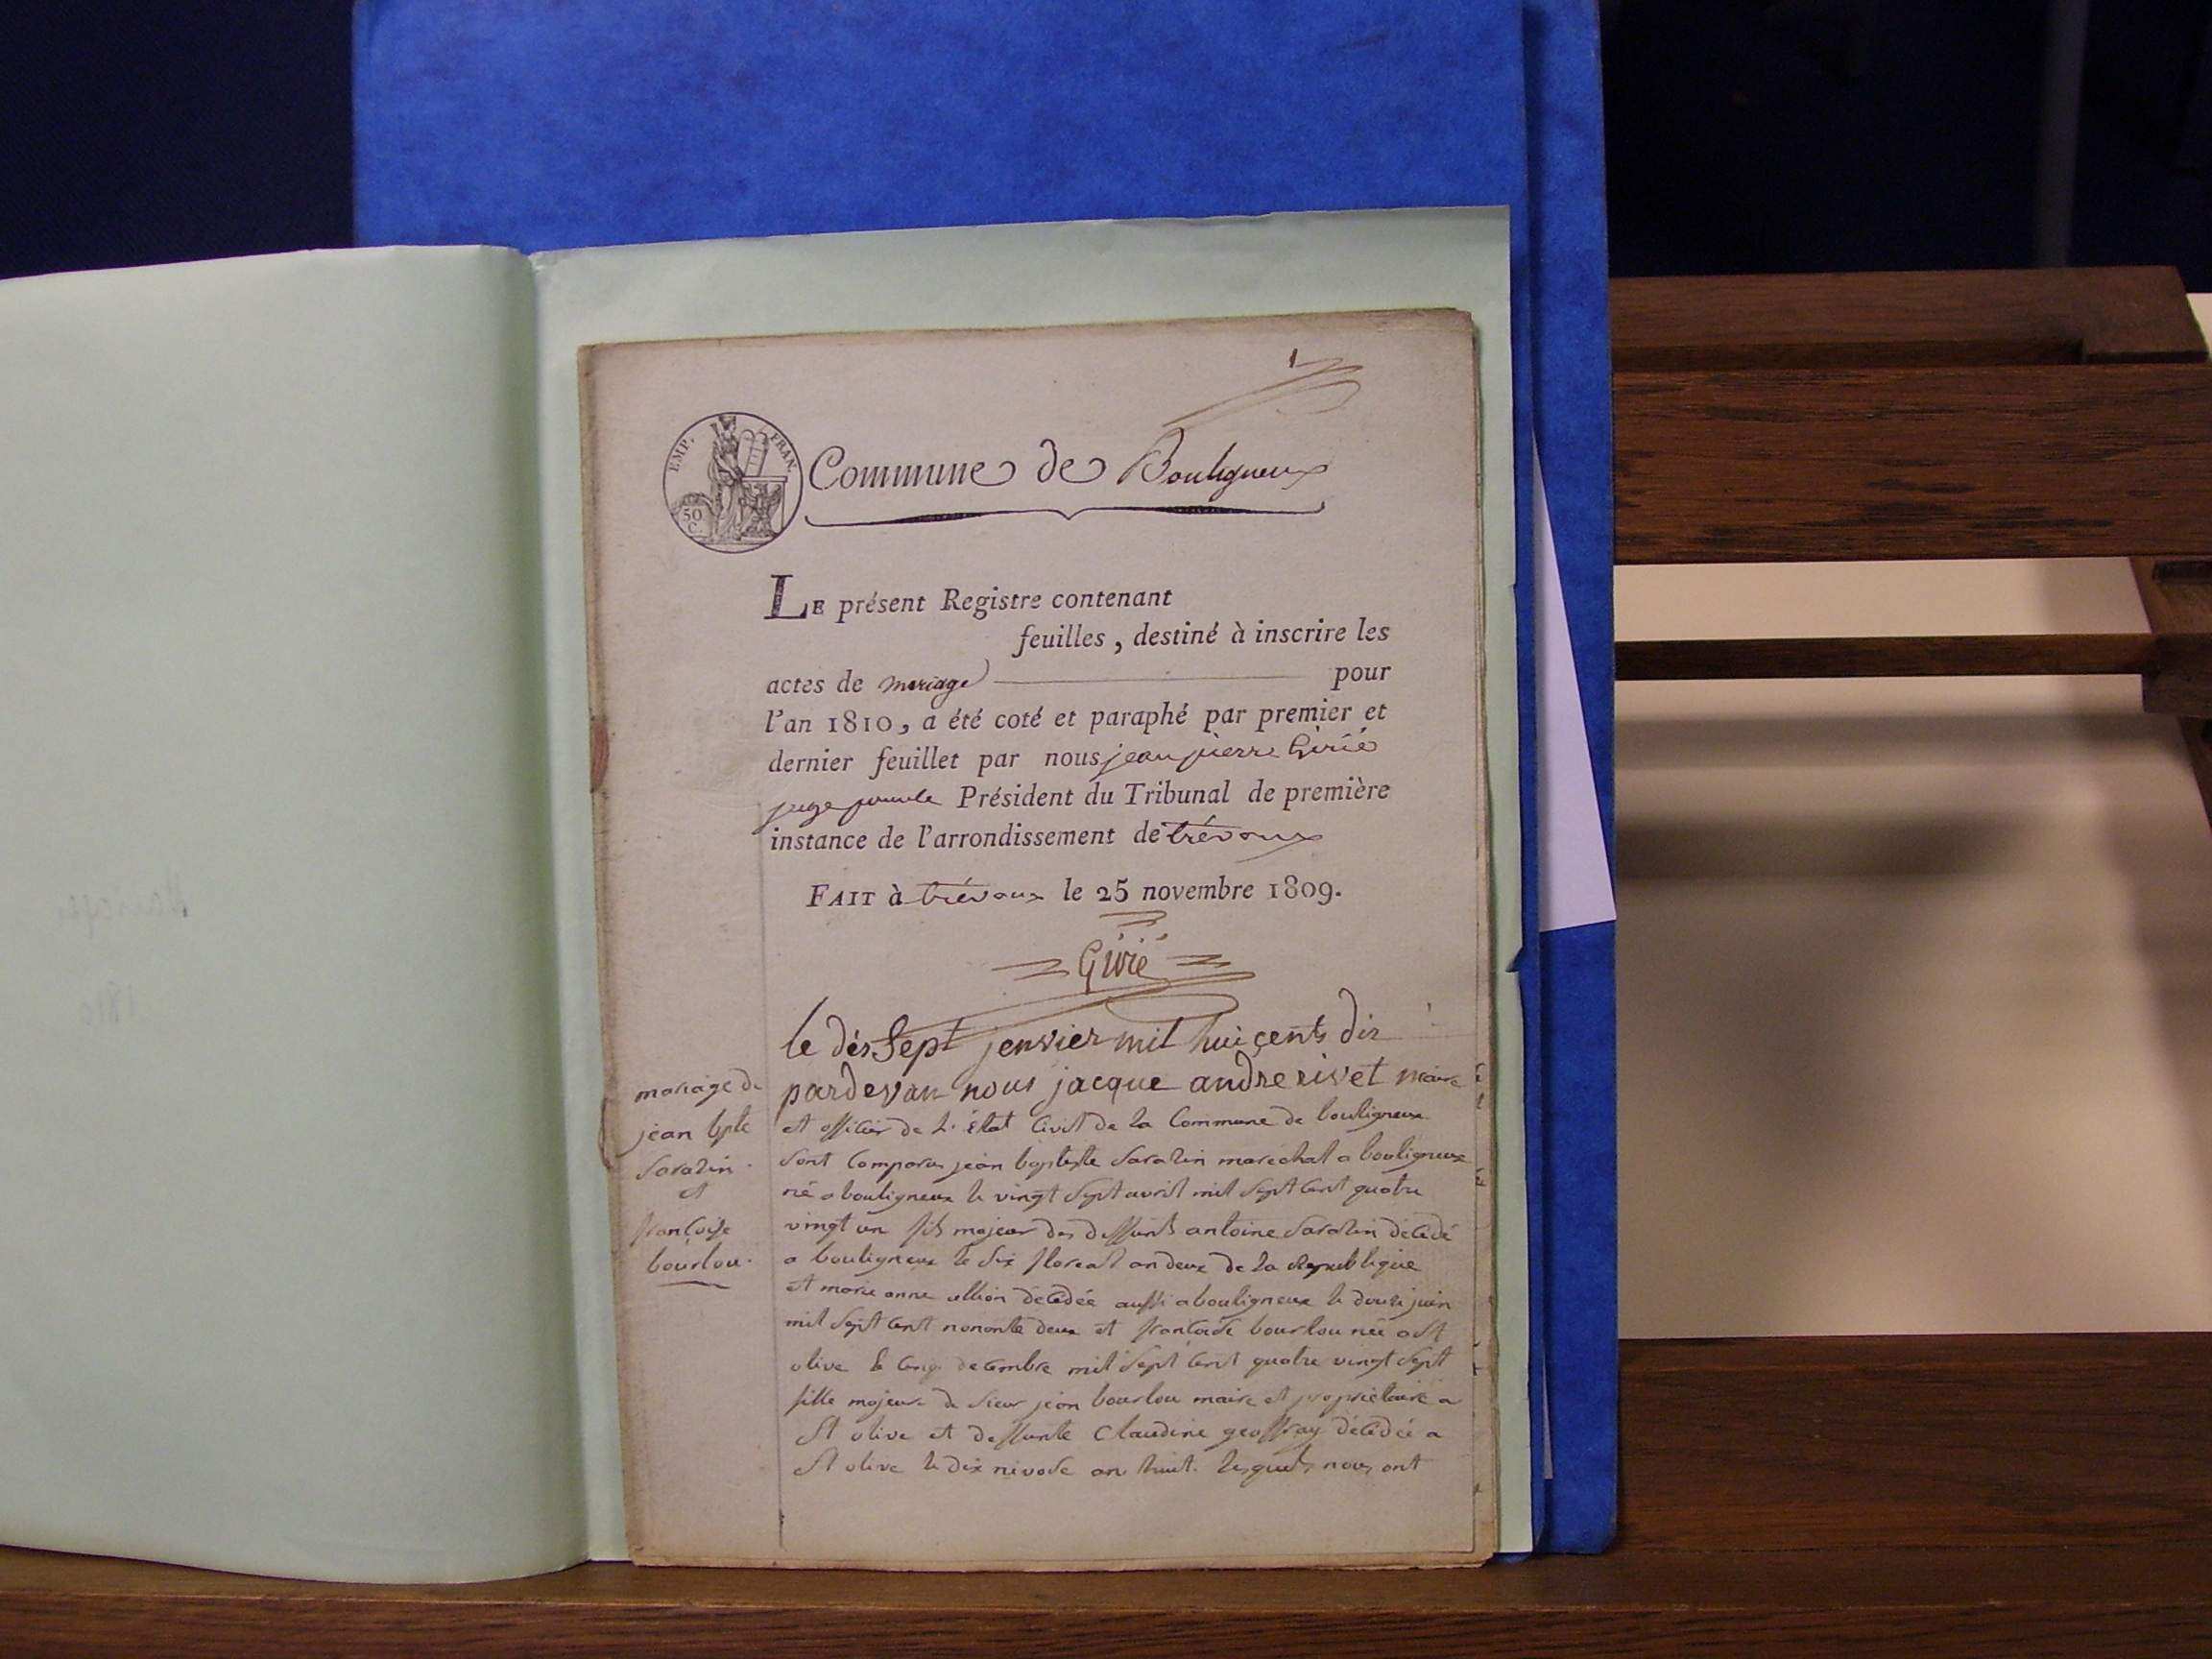 1
EMP. FRAN.
50
C.
Commune de Bouligneux
LE présent Registre contenant
feuilles, destiné à inscrire les
actes de mariage pour
l'an 1810, a été coté et paraphé par premier et
dernier feuillet par nous jean pierre Girié
juge pour le Président du Tribunal de première
instance de l'arrondissement de trévoux
FAIT à trévoux le 25 novembre 1809.
Girié
mariage de
jean bpte
Sarazin
et
francoise
bourlou
le dèsSept jenvier mil hui cents dix
pardevan nous jacque andre rivet maire
et officier de L'état Civil de La Commune de bouligneux
Sont Comparus jean baptiste Sarazin marechal a bouligneux
né a bouligneux le vingt Sept avril mil Sept Cent quatre
vingt un fils majeur des deffunts antoine Sarazin décédé
a bouligneux le Six floreal an deux de la Republique
et marie anne décédée aussi a bouligneux le douze juin
mil Sept Cent nonante deux et francoise bourlou née a St
olive le cinq decembre mil Sept Cent quatre vingt Sept
fille majeure de Sieur jean bourlou maire et proprietaire a
St olive et deffunte Claudine geoffray décédée a
St olive le dix nivose an huit. Lesquels nous ont
Mariages
1810